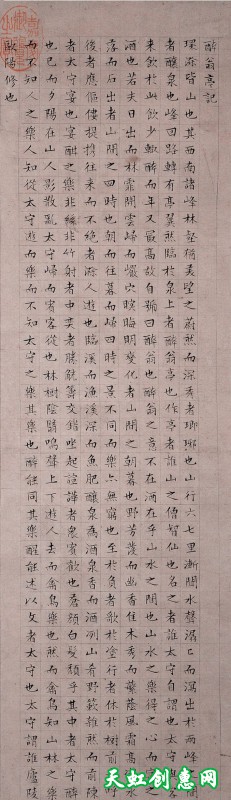 醉翁亭記
環滁皆山也其西南諸峰林壑尤美望之蔚然而深秀者瑯琊也山行六七里漸聞水聲潺潺而瀉出於兩峰之間
者釀泉也峰回路轉有亭翼然臨於泉上者醉翁亭也作亭者誰山之僧智仙也名之者誰太守自謂也太守與客
來飲於此飲少輒醉而年又最高故自號曰醉翁也醉翁之意不在酒在乎山水之間也山水之樂得之心而寓之
酒也若夫日出而林霏開雲歸而巖穴暝晦明變化者山間之朝暮也野芳發而幽香佳木秀而繁陰風霜高潔水
落而石出者山間之四時也朝而往暮而歸四時之景不同而樂亦無窮也至於負者歌於塗行者休於樹前者呼
後者應傴僂提攜往來而不絕者滁人遊也臨溪而漁溪深而魚肥釀泉為酒泉香而酒洌山肴野蔌雜然而前陳
者太守宴也宴酣之樂非絲非竹射者中奕者勝觥籌交錯坐起諠譁者眾賓歡也蒼顏白髮頹乎其中者太守醉
也已而夕陽在山人影散亂太守歸而賓客從也樹林陰翳鳴聲上下遊人去而禽鳥樂也然而禽鳥知山林之樂
而不知人之樂人知從太守遊而樂而不知太守之樂其樂也醉能同其樂醒能述以文者太守也太守謂誰廬陵
歐陽修也
天虹创意网